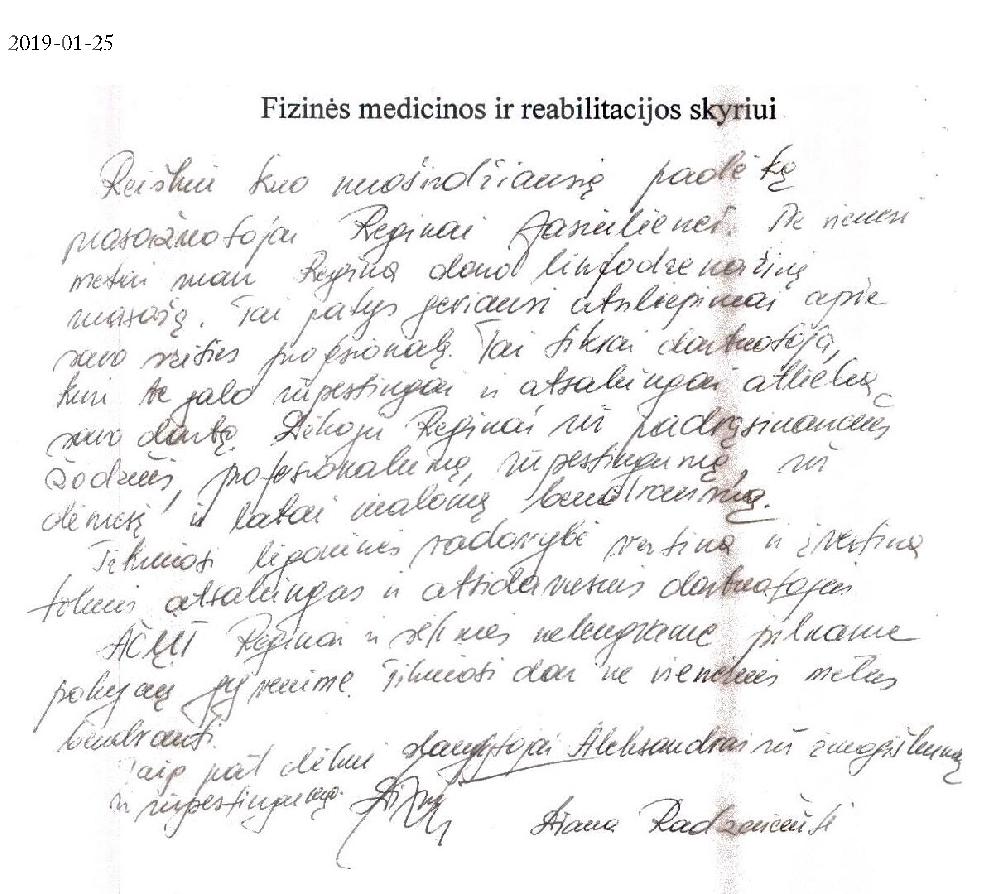 2019-01-25
Fizinės medicinos ir reabilitacijos skyriui
Reiškiu kuo nuoširdžiausią padėką
masažuotojai Reginai. Ne vienerius
metus man Regina daro limfodrenažinį
masažą. Tai patys geriausi atsiliepimai apie
savo srities profesionalą. Tai tikrai darbuotoja,
kuri be galo rūpestingai ir atsakingai atlieka
savo darbą. Dėkoju Reginai už padrąsinančius
žodžius, profesionalumą, rūpestingumą, už
dėmesį ir labai malonų bendravimą.
Tikiuosi ligoninės vadovybė vertina ir įvertina
tokius atsakingus ir atsidavusius darbuotojus
AČIŪ Reginai ir sėkmės nelengvame pilname
pokyčių gyvenime. Tikiuosi dar ne vienerius metus
bendrauti.
Taip pat dėkui Aleksandrai už žmogiškumą
ir rūpestingumą.